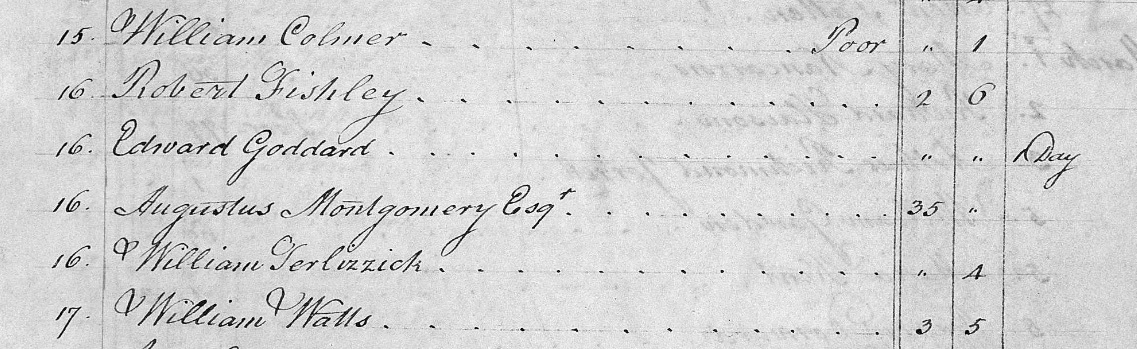 15. William Colmer . . . . . . . . . . Poor " 1
16. Robert Fishley . . . . . . . . . . . . . 2 6
16. Edward Goddard . . . . . . . . . . . . . . " " 1 Day
16. Augustus Montgomery Esqr. . . . . . . . . . 35 "
16. William Terlizzick . . . . . . . . . . . . . " 4
17. William Watts . . . . . . . . . . . . . . 3 5